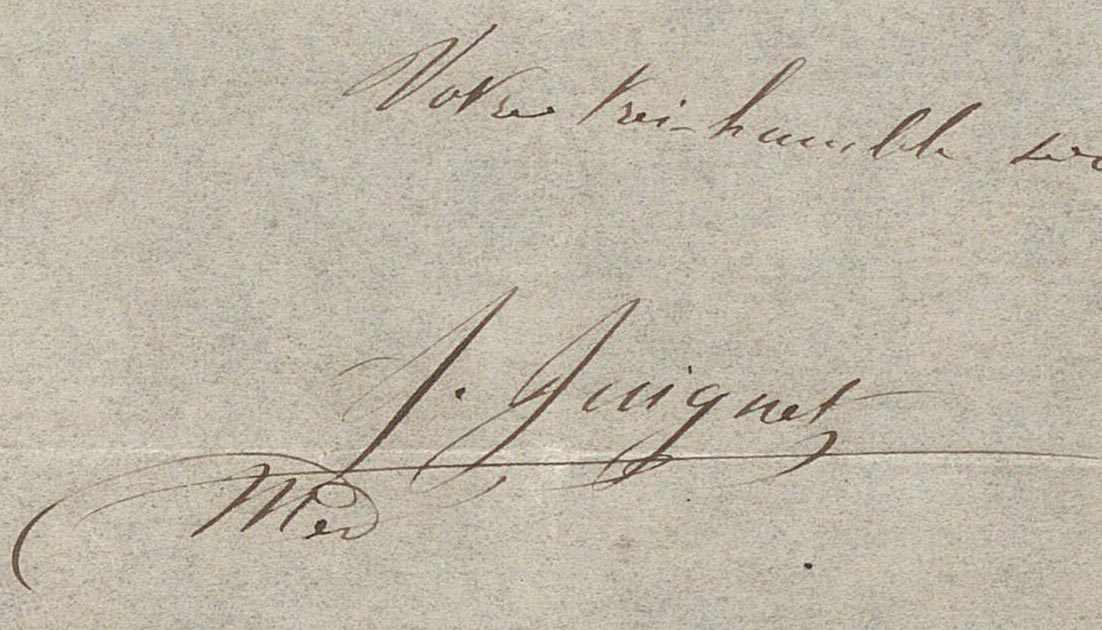 Votre très-humble
J. Guignet
Med